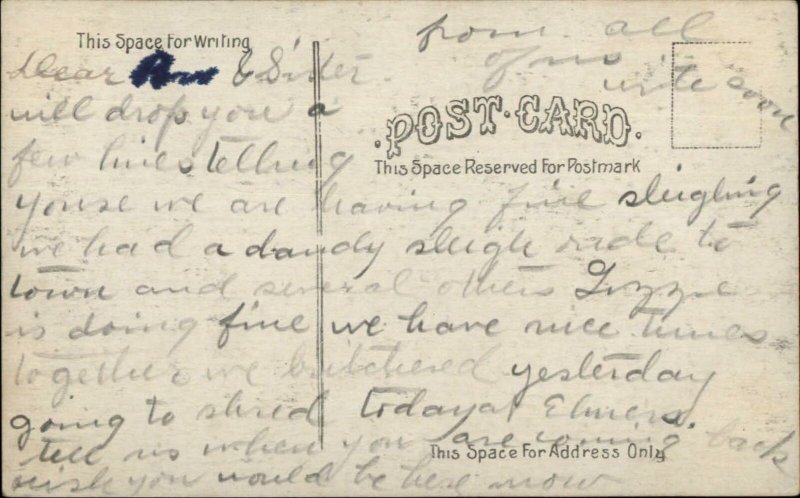 This Space For Writing
Dear & Sister
will drop you a
few lines telling
youse we are having fine sleighing
we had a dandy sleigh ride to
town and several others Lizzie
is doing fine we have nice times
together we butchered yesterday
going to shred today at Elmers.
tell us when you are coming back
wish you would be here now
from all
of us
write soon
POST CARD.
This Space Reserved For Postmark
This Space For Address Only